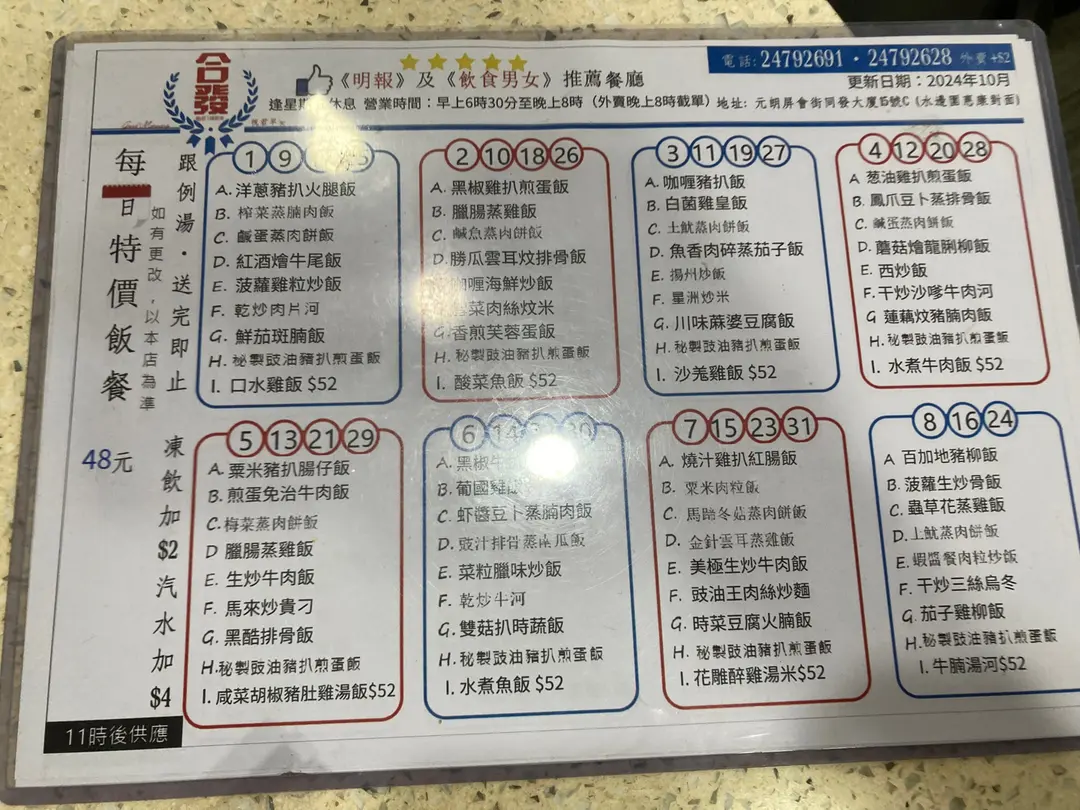 合發
《明報》及《飲食男女》推薦餐廳
電話:24792691・24792628 外賣+$2
更新日期:2024年10月
逢星期 休息 營業時間:早上6時30分至晚上8時(外賣晚上8時截單) 地址:元朗屏會街同發大廈 號C(水邊圍惠康對面)
每日特價飯餐
如有更改,以本店為準
跟例湯・送完即止
48元
凍飲加$2 汽水加$4
11時後供應
1 9
A. 洋蔥豬扒火腿飯
B. 榨菜蒸腩肉飯
C. 鹹蛋蒸肉餅飯
D. 紅酒燴牛尾飯
E. 菠蘿雞粒炒飯
F. 乾炒肉片河
G. 鮮茄斑腩飯
H. 秘製豉油豬扒煎蛋飯
I. 口水雞飯 $52
2 10 18 26
A. 黑椒雞扒煎蛋飯
B. 臘腸蒸雞飯
C. 鹹魚蒸肉餅飯
D. 勝瓜雲耳炆排骨飯
咖喱海鮮炒飯
菜肉絲炆米
G. 香煎芙蓉蛋飯
H. 秘製豉油豬扒煎蛋飯
I. 酸菜魚飯 $52
3 11 19 27
A. 咖喱豬扒飯
B. 白菌雞皇飯
C. 土魷蒸肉餅飯
D. 魚香肉碎蒸茄子飯
E. 揚州炒飯
F. 星洲炒米
G. 川味蔴婆豆腐飯
H. 秘製豉油豬扒煎蛋飯
I. 沙羗雞飯 $52
4 12 20 28
A 葱油雞扒煎蛋飯
B. 鳳爪豆卜蒸排骨飯
C. 鹹蛋蒸肉餅飯
D. 蘑菇燴龍脷柳飯
E. 西炒飯
F. 干炒沙嗲牛肉河
G 蓮藕炆豬腩肉飯
H. 秘製豉油豬扒煎蛋飯
I. 水煮牛肉飯 $52
5 13 21 29
A. 粟米豬扒腸仔飯
B. 煎蛋免治牛肉飯
C. 梅菜蒸肉餅飯
D 臘腸蒸雞飯
E. 生炒牛肉飯
F. 馬來炒貴刁
G. 黑酷排骨飯
H. 秘製豉油豬扒煎蛋飯
I. 咸菜胡椒豬肚雞湯飯$52
6 14
A. 黑椒牛
B. 葡國雞
C. 虾醬豆卜蒸腩肉飯
D. 豉汁排骨蒸南瓜飯
E. 菜粒臘味炒飯
F. 乾炒牛河
G. 雙菇扒時蔬飯
H. 秘製豉油豬扒煎蛋飯
I. 水煮魚飯 $52
7 15 23 31
A. 燒汁雞扒紅腸飯
B. 粟米肉粒飯
C. 馬蹄冬菇蒸肉餅飯
D. 金針雲耳蒸雞飯
E. 美極生炒牛肉飯
F. 豉油王肉絲炒麵
G. 時菜豆腐火腩飯
H. 秘製豉油豬扒煎蛋飯
I. 花雕醉雞湯米$52
8 16 24
A 百加地豬柳飯
B. 菠蘿生炒骨飯
C. 蟲草花蒸雞飯
D. 土魷蒸肉餅飯
E. 蝦醬餐肉粒炒飯
F. 干炒三絲烏冬
G. 茄子雞柳飯
H. 秘製豉油豬扒煎蛋飯
I. 牛腩湯河$52